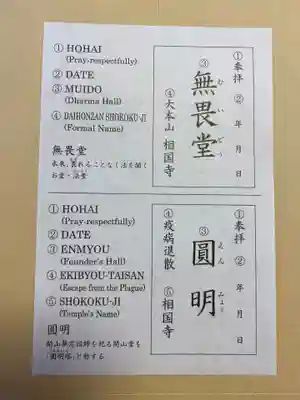 ① HOHAI
(Pray-respectfully)
② DATE
③ MUIDO
(Dharma Hall)
④ DAIHONZAN SHOKOKU-JI
(Formal Name)
無畏堂
お堂・法堂
①奉拝
② 年 月 日
③
無畏堂
むいどう
④大本山 相国寺
① HOHAI
(Pray-respectfully)
② DATE
③ ENMYOU
(Founder's Hall)
④ EKIBYOU-TAISAN
(Escape from the Plague)
⑤ SHOKOKU-JI
(Temple's Name)
圓明
開山夢窓国師を祀る開山堂を
「圓明塔」と称する
①奉拝
② 年 月 日
③
圓明
えんみょう
④疫病退散
⑤相国寺